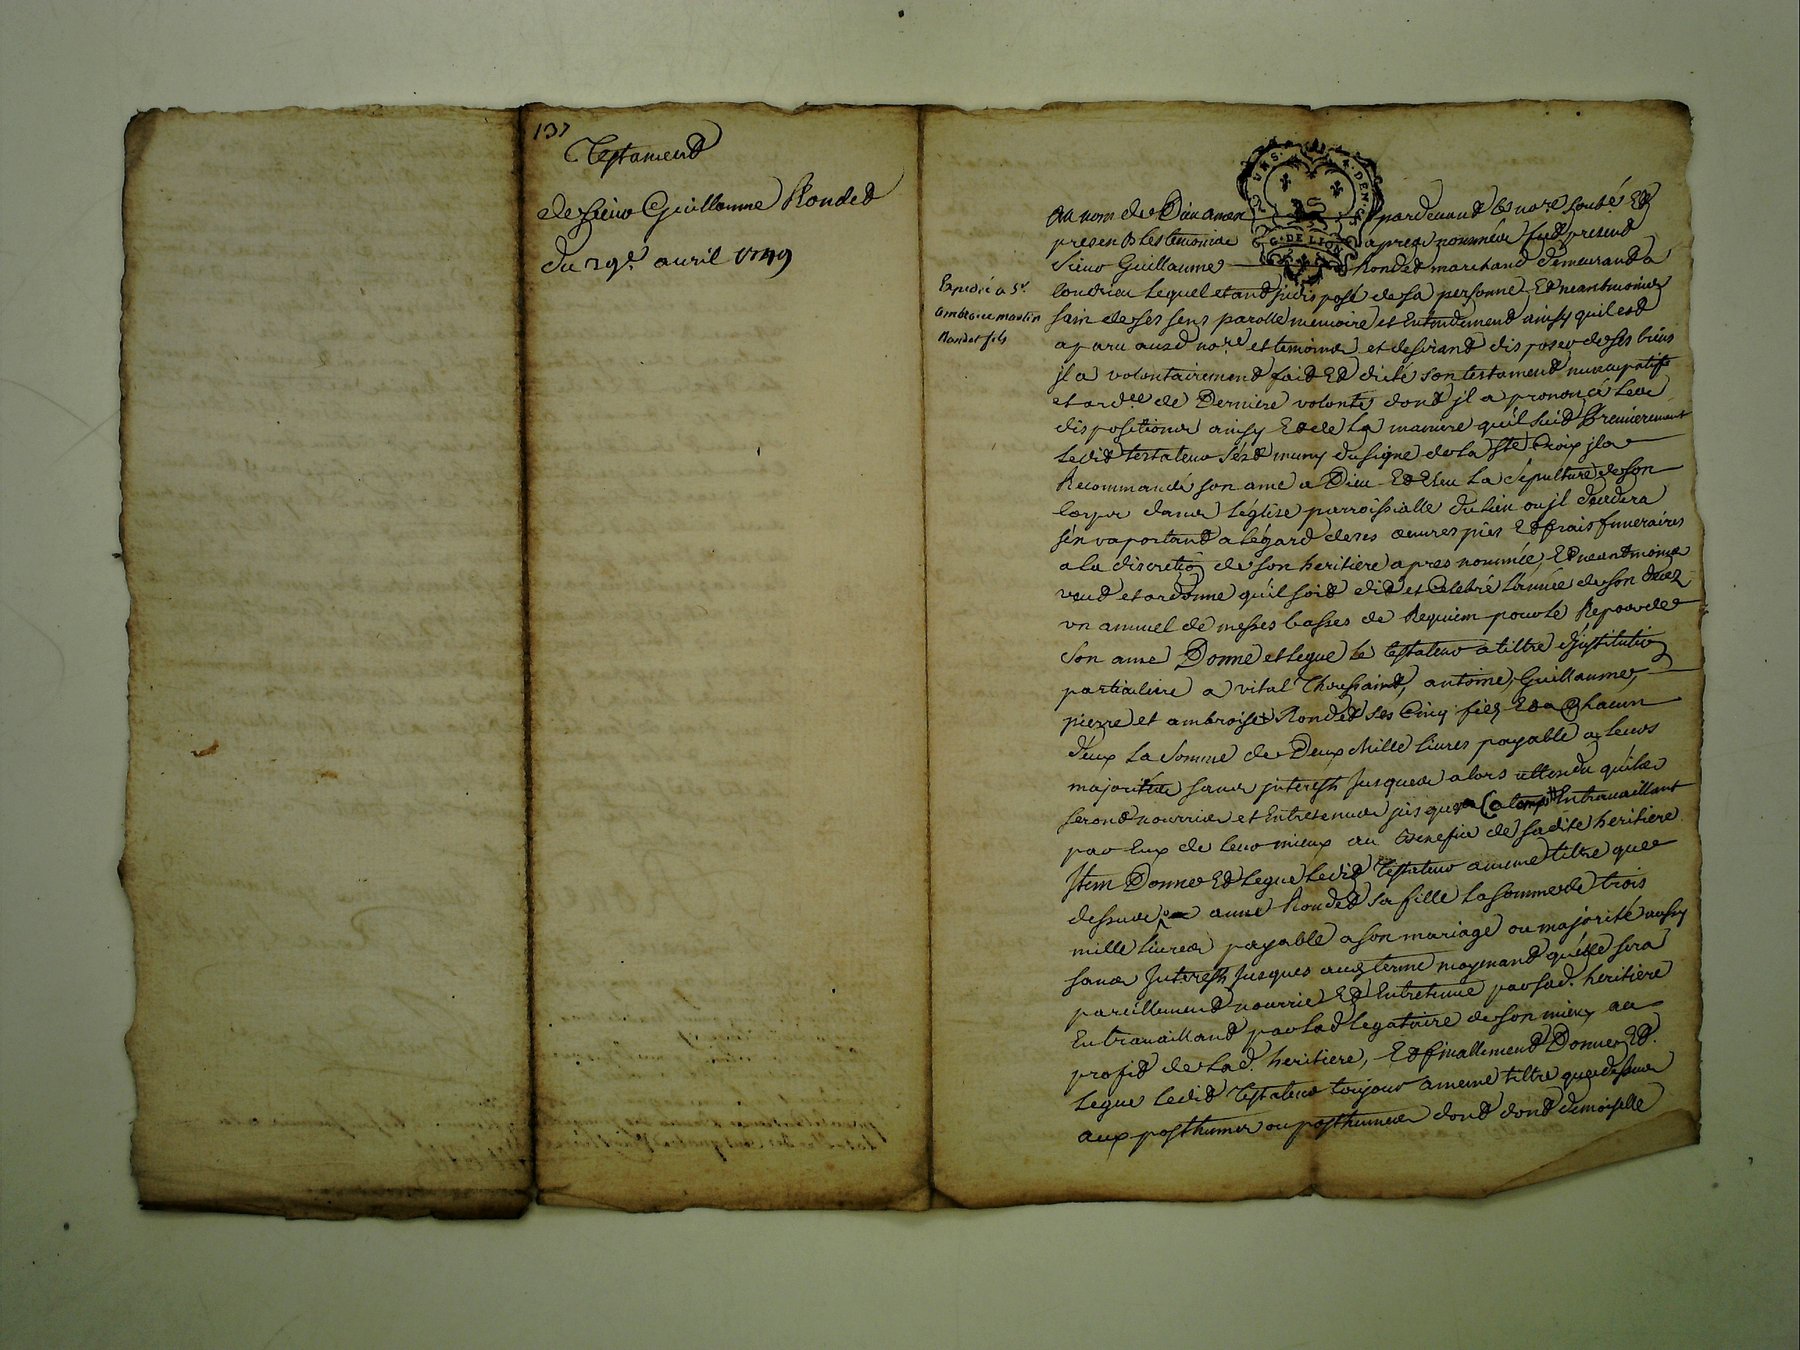 137
Testament
de sieur Guillaume Rondet
du 29e. avril 1749
Expedié a Sr.
Ambroise martin
Rondet fils
DEUX S. 4 DEN.
G. DE LION
Au nom de Dieu amen pardevant le nore. soub.é Et
presents les temoins apres nommés fut present
sieur Guillaume Rondet marchand demeurant a
Condrieu lequel etant jndisposé de sa personne Et neantmoins
sain de ses sens parolle memoire et Entendement ainsy qu'il est
aparu aud nore et temoins et desirant disposer de ses biens
jl a volontairement fait Et dicté son testament nuncupatif
et ordce de Derniere volonté dont jl a prononcé les
dispositions ainsy Et de La maniere qu'il suit Premierement
Ledit testateur s'est muny du signe de la Ste Croix jl a
Recommandé son ame a Dieu Et Eleu La sepulture de son
Corps dans l'église parroissialle du lieu ou jl decedera
s'en raportant a l'égard de ses oeuvres pies Et frais funeraires
a la discretion de son heritiere apres nommée, Et neantmoins
veut et ordonne qu'il soit dit et Celebré l'année de son decez
un annuel de messes basses de Requiem pour le Repos de
son ame Donne et legue le testateur a tiltre d'jnstitution
particuliere a vital Thoussaint, antoine, Guillaume,
pierre et ambroise Rondet ses Cinq fils Et a Chacun
d'eux La somme de Deux Mille livres payable a leurs
majorités sans jnterest jusques alors attendu qu'ils
seront nourris et Entretenus jusques a Ce temps Entravaillant
par Eux de leur mieux au Benefice de sadite heritiere
Item Donne Et legue Ledit Testateur a meme tiltre que
dessus a anne Rondet sa fille La somme de trois
mille livres payable a son mariage ou majorité aussy
sans Jnterest Jusques aud terme moyenant qu'elle sera
pareillement nourrie Et Entretenue par sad. heritiere
En travaillant par Lad legataire de son mieux au
profit de Lad. heritiere, Et finallement Donne Et
Legue Ledit Testateur toujour a meme tiltre que dessus
aux posthumes ou posthumes dont dont demoiselle